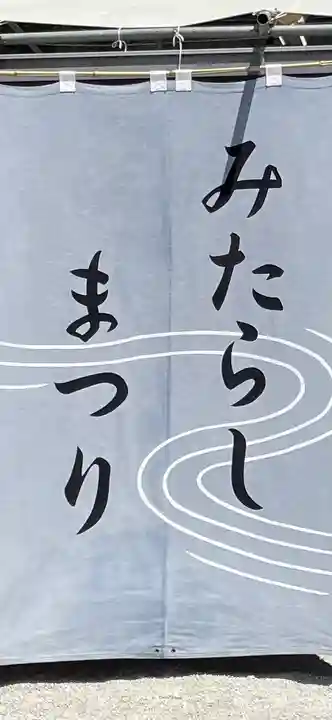 みたらし
まつり